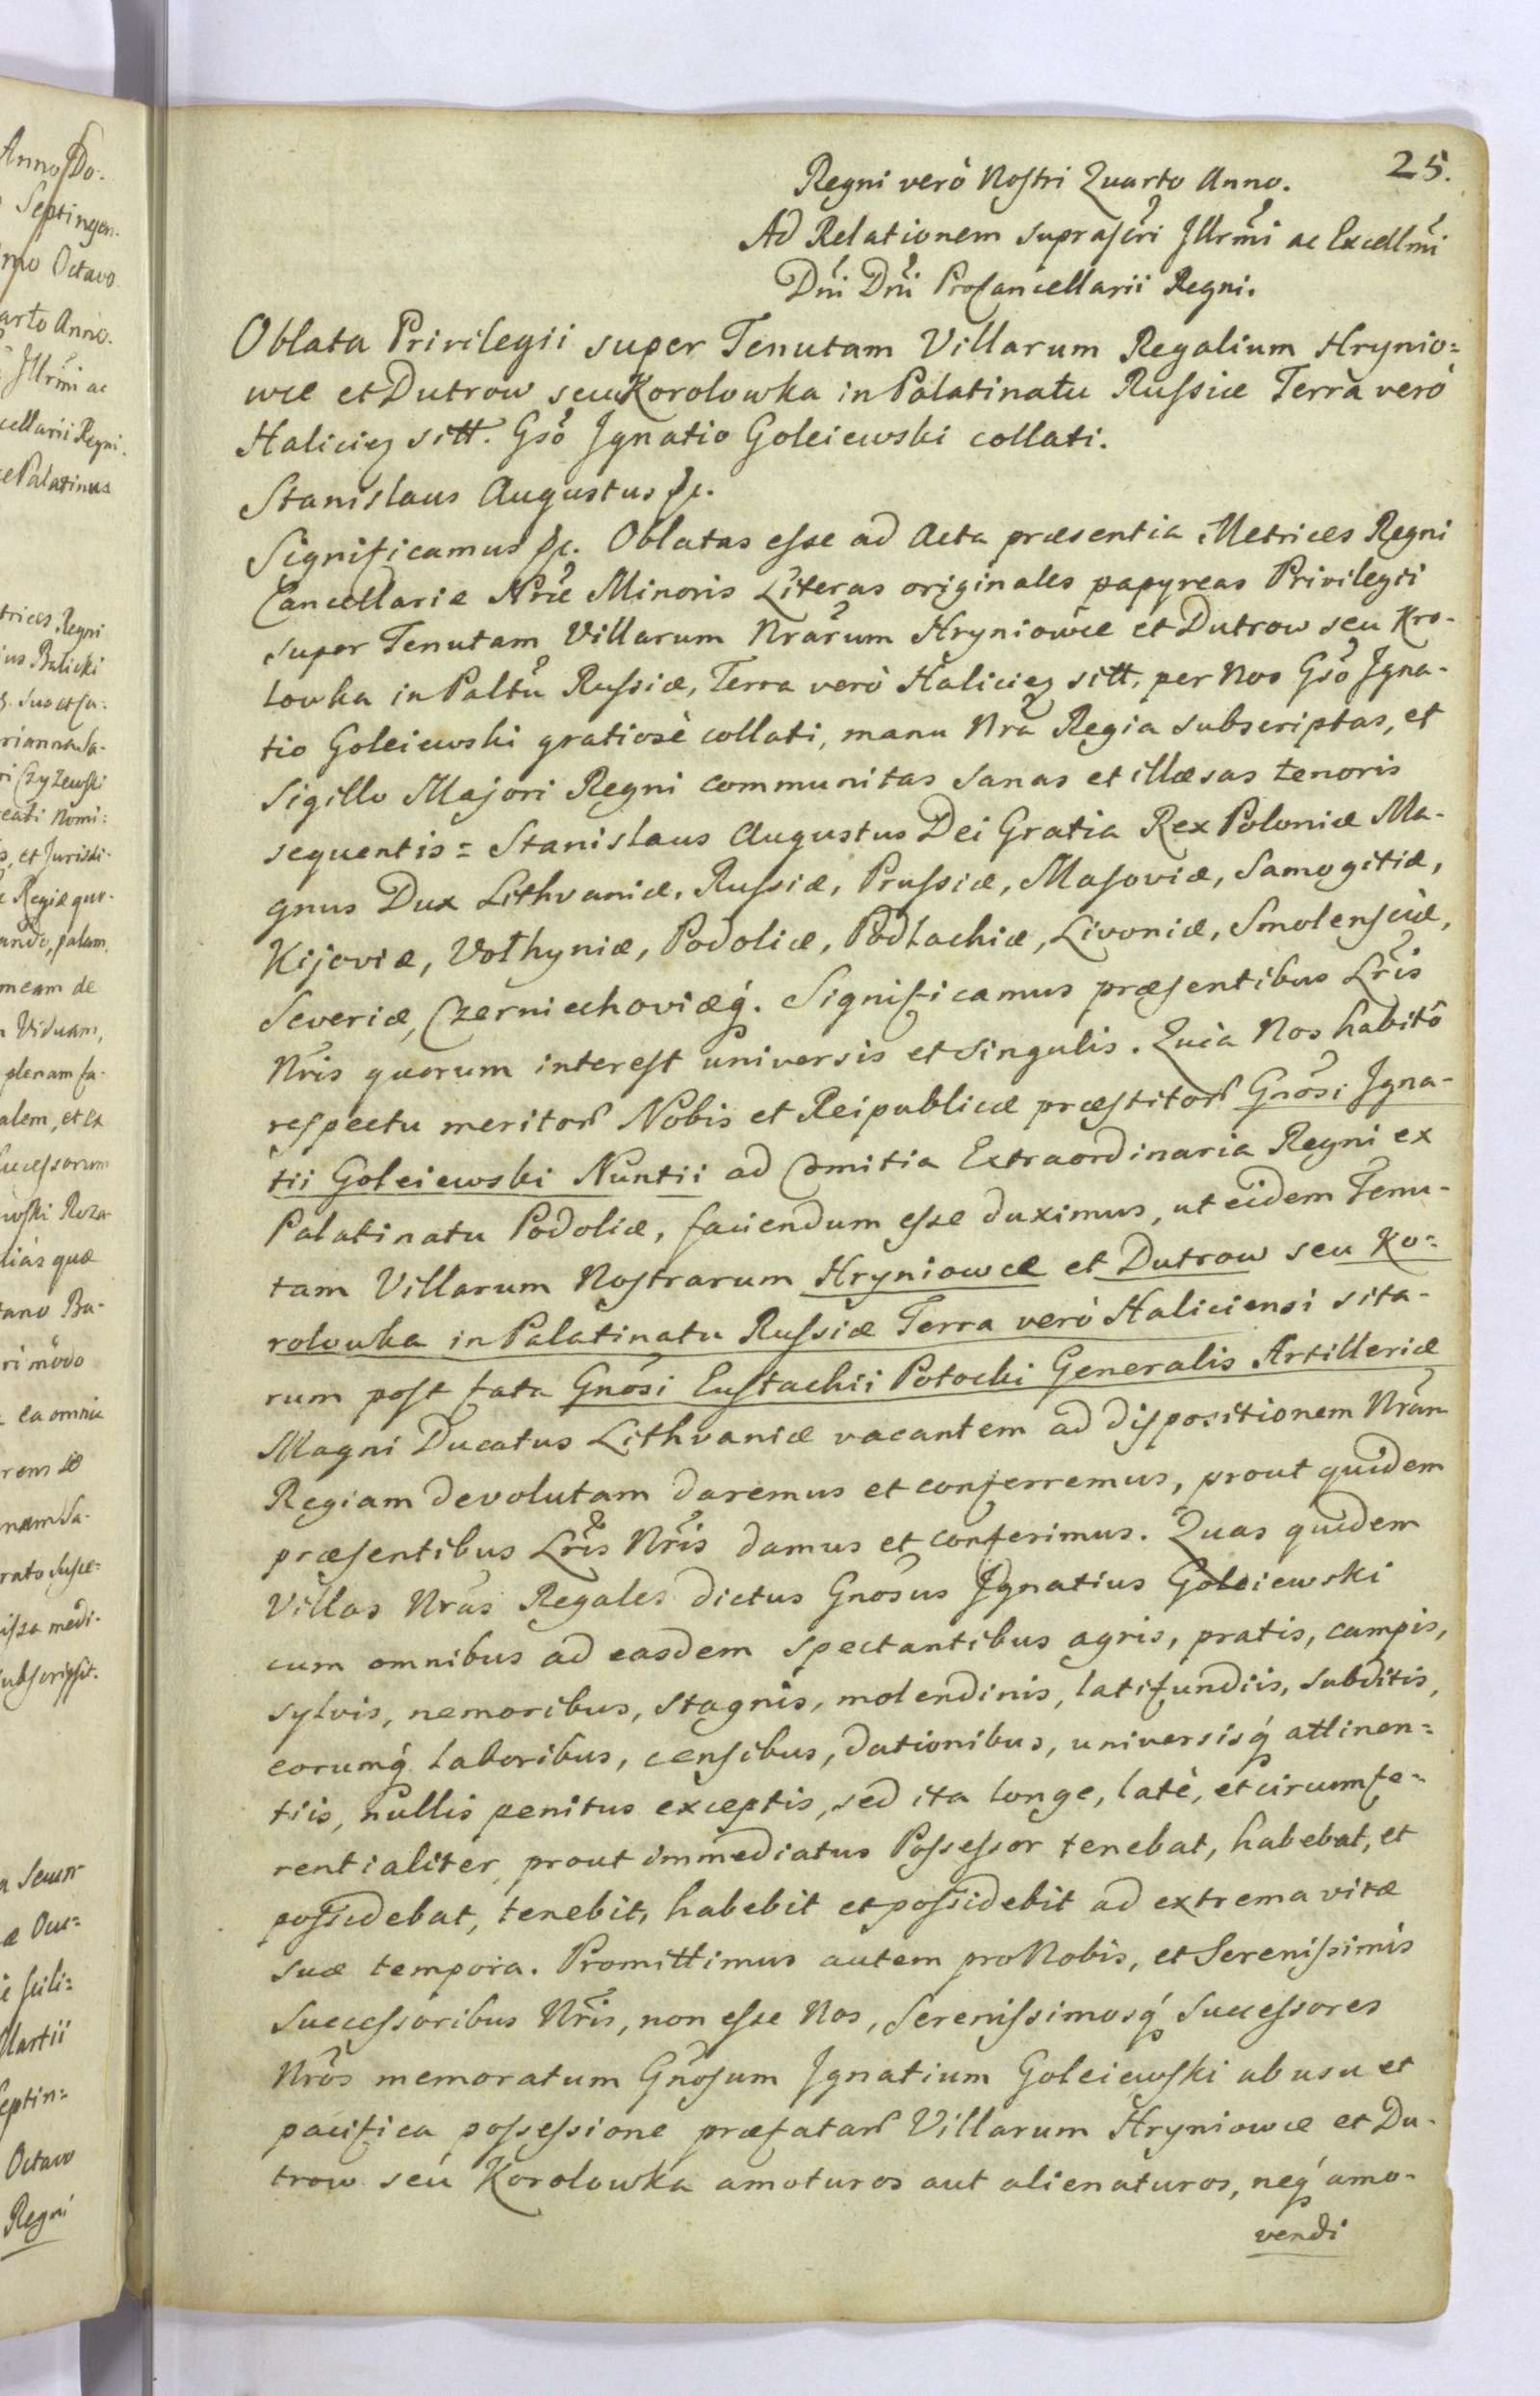 Anno Do-
Septingen-
mo Octavo
arto Anno.
Jllrm̃i ac
cellarii Regni.
ePalatinus
trices Regni
ius Bulicki
ri Czyżewski
eati Nomi:
s, et Juridi-
Regiæ que-
ando, palam
meam de
Viduam,
plenam fa-
alem, et ex
Successorum
iewski Roza-
liàs quæ
tano Ba-
ri modo
ea omnia
nam Sa-
rato susce=
issa medi-
subscripsit.
Martii
Septin=
Octavo
Regni
25.
Regni verò Nostri Quarto Anno.
Ad Relationem suprascri Jllrm̃i ac Excellm̃i
Dñi Dñi Procancellarii Regni.
Oblata Privilegii super Tenutam Villarum Regalium Hrynio=
wce et Dutrow seu Korolowka in Palatinatu Russiæ Terra verò
Haliciez sitt. Gsõ Jgnatio Goleiewski collati.
Stanislaus Augustus &c.
Significamus &c. Oblatas esse ad Acta præsentia Metrices Regni
Cancellariæ Nræ Minoris Literas originales papyreas Privilegii
super Tenutam Villarum Nrarum Hryniowce et Dutrow seu Kro-
lowka in Paltũ Russiæ, Terra verò Haliciez sitt, per Nos Gsõ Jgna-
tio Goleiewski gratiosè collati, manu Nrã Regia subscriptas, et
Sigillo Majori Regni communitas sanas et illæsas tenoris
sequentis = Stanislaus Augustus Dei Gratia Rex Poloniæ Ma-
gnus Dux Lithvaniæ, Russiæ, Prussiæ, Masoviæ, Samogitiæ,
Kijoviæ, Volhyniæ, Podoliæ, Podlachiæ, Livoniæ, Smolensciæ,
Severiæ, Czerniechoviæq́. Significamus præsentibus Lrĩs
Nrĩs quorum interest universis et singulis. Quia Nos habitô
respectu meritor Nobis et Reipublicæ præstitor Gnõsi Jgna-
tii Goleiewski Nuntii ad Comitia Extraordinaria Regni ex
Palatinatu Podoliæ, faciendum esse duximus, ut eidem Tenu-
tam Villarum Nostrarum Hryniowce et Dutrow seu Ko=
rolowka in Palatinatu Russiæ Terra verò Haliciensi sita-
rum post fata Gnõsi Eustachii Potocki Generalis Artilleriæ
Magni Ducatus Lithvaniæ vacantem ad dispositionem Nrãm
Regiam devolutam daremus et conferremus, prout quidem
præsentibus Lrĩs Nrĩs damus et conferimus. Quas quidem
Villas Nrãs Regales dictus Gnõsus Jgnatius Goleiewski
cum omnibus ad easdem spectantibus agris, pratis, campis,
sylvis, nemoribus, stagnis, molendinis, latifundiis, subditis,
eorumq́ laboribus, censibus, dationibus, universisq́ attinen=
tiis, nullis penitus exceptis, sed ita longe, latè, et circumfe-
rentialiter, prout immediatus Possessor tenebat, habebat, et
possidebat, tenebit, habebit et possidebit ad extrema vitæ
suæ tempora. Promittimus autem pro Nobis, et Serenissimis
Successoribus Nrĩs, non esse Nos, Serenissimosq́ Successores
Nrõs memoratum Gnõsum Jgnatium Goleiewski ab usu et
pacifica possessione præfatar Villarum Hryniowce et Du-
trow seu Korolowka amoturos aut alienaturos, neq́ amo-
vendi